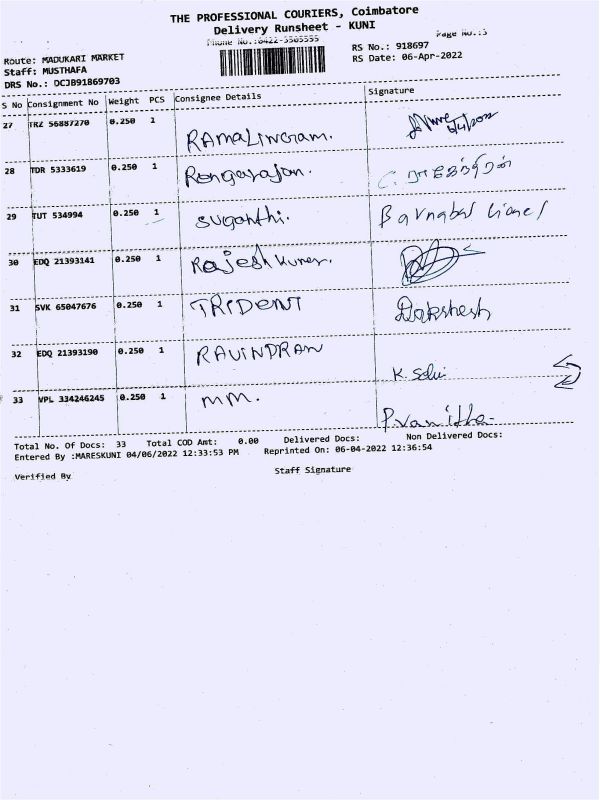 THE PROFESSIONAL COURIERS, Coimbatore
Delivery Runsheet - KUNI
Phone No.:0422-3505555 Page No.:3
Route: MADUKARI MARKET RS No.: 918697
Staff: MUSTHAFA RS Date: 06-Apr-2022
DRS No.: DCJB91869703
S No Consignment No Weight PCS Consignee Details Signature
27 TRZ 56887270 0.250 1 RAMALINGRAM.
28 TDR 5333619 0.250 1 Rengarajan. C. ராஜேந்திரன்
29 TUT 534994 0.250 1 suganthi. Barnabas Lionel
30 EDQ 21393141 0.250 1 Rajesh kumer.
31 SVK 65047676 0.250 1 TRIDENT Dakshesh
32 EDQ 21393190 0.250 1 RAVINDRAN K. Selvi
33 VPL 334246245 0.250 1 MM. P. Vanitha-
Total No. Of Docs: 33 Total COD Amt: 0.00 Delivered Docs: Non Delivered Docs:
Entered By :MARESKUNI 04/06/2022 12:33:53 PM Reprinted On: 06-04-2022 12:36:54
Verified By Staff Signature